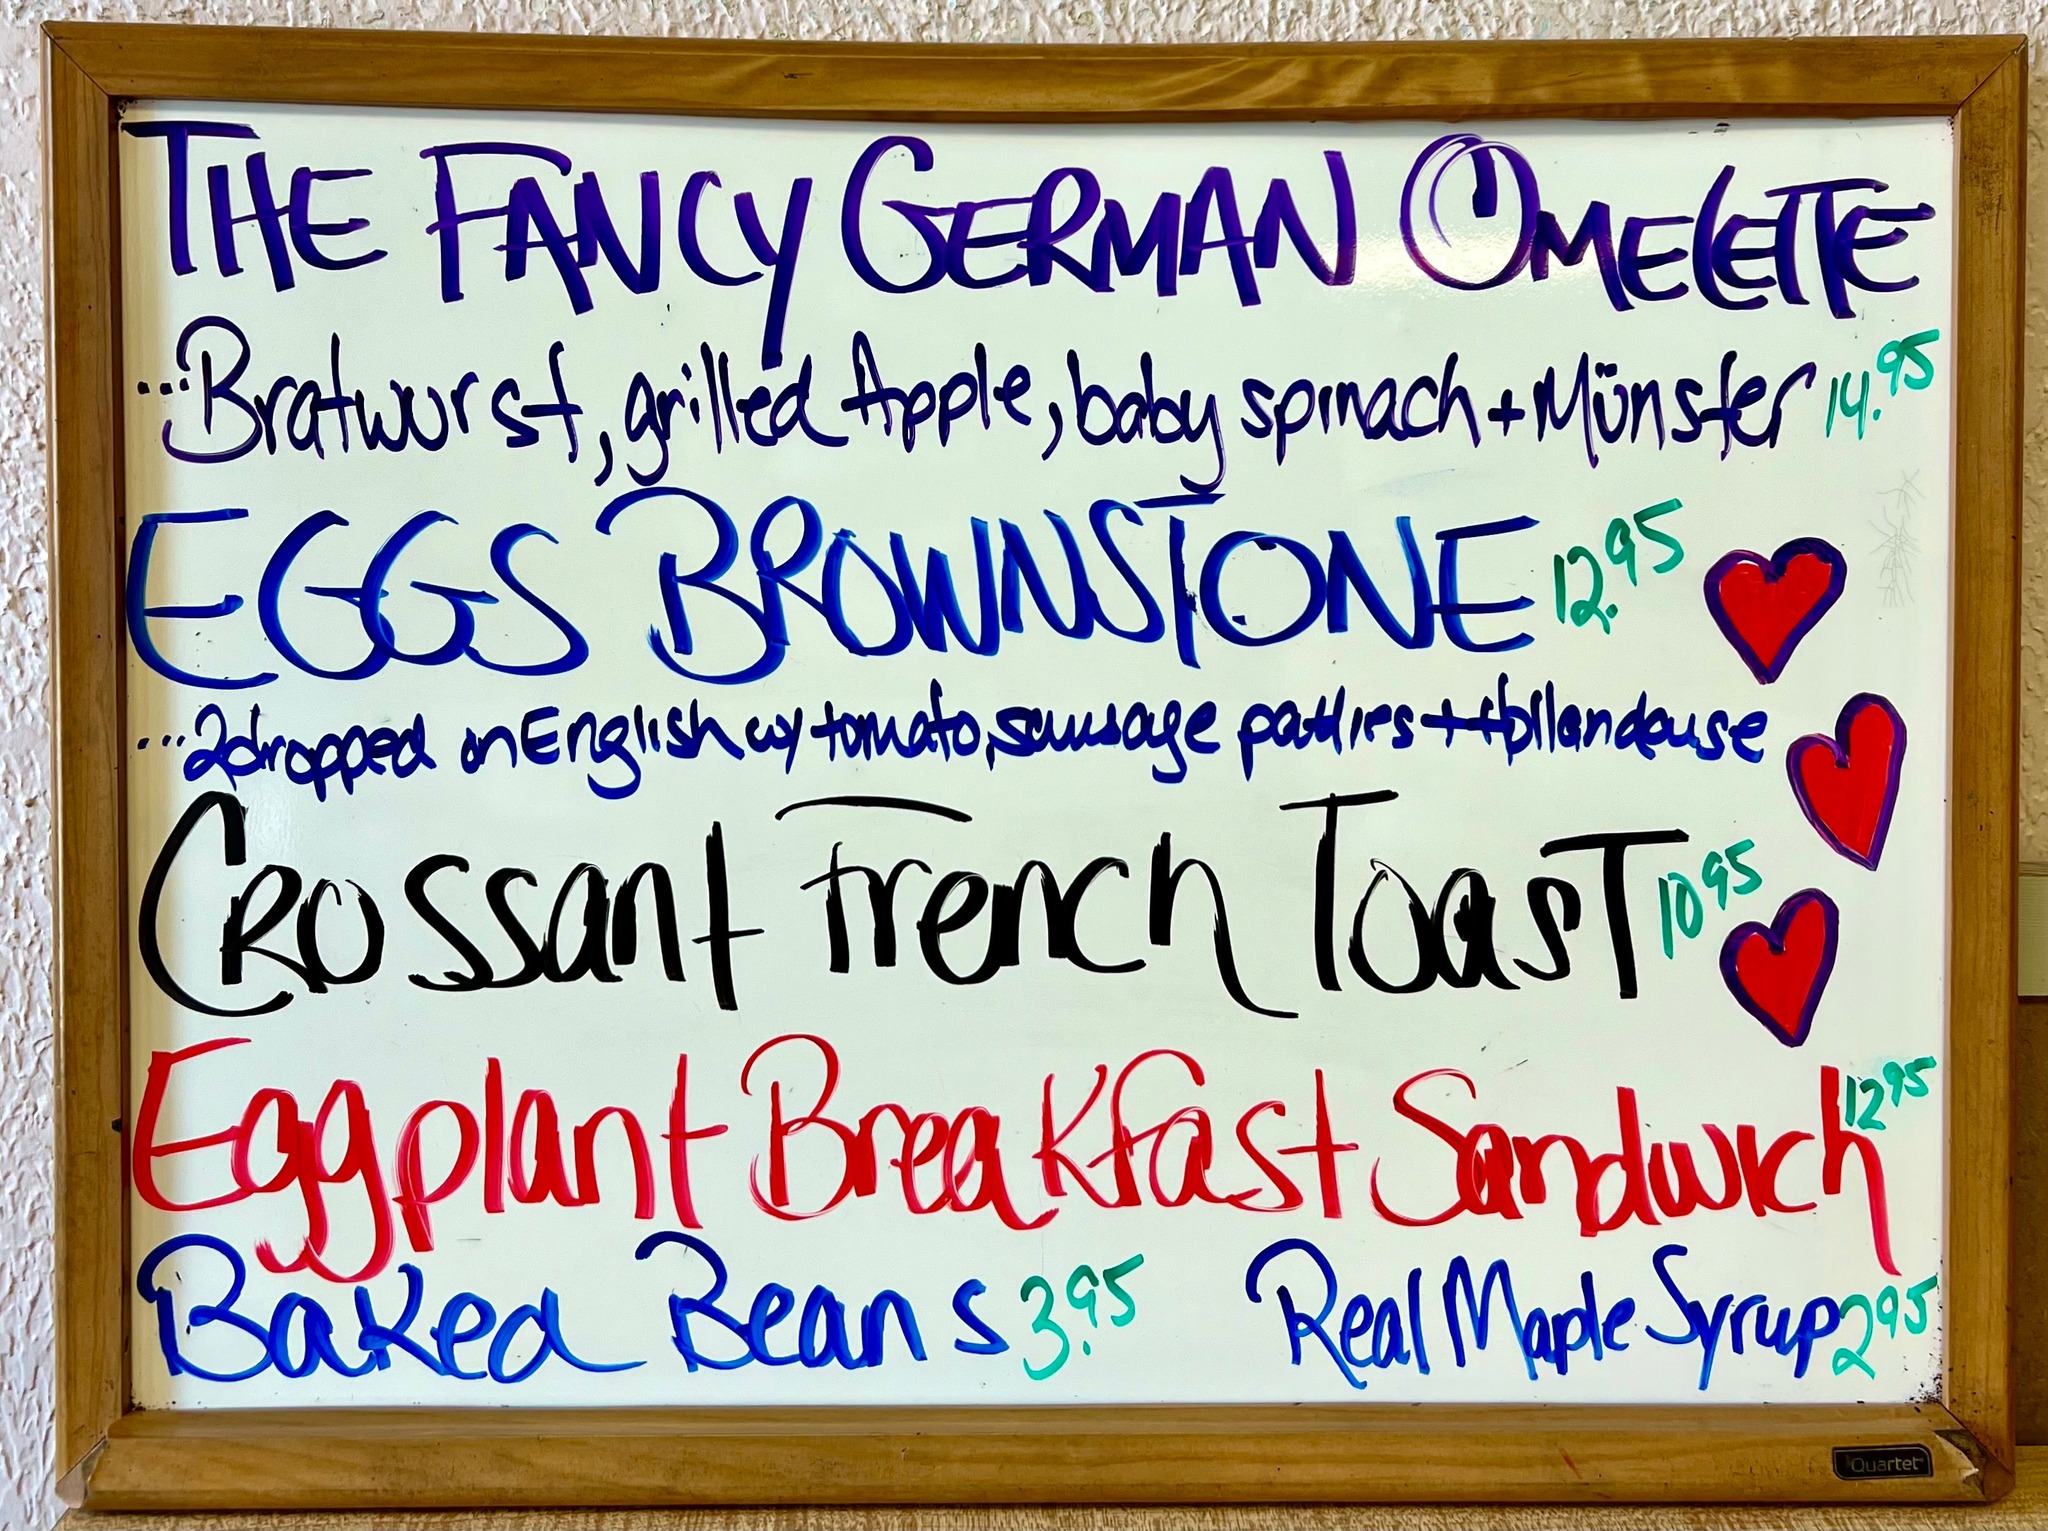 THE FANCY GERMAN OMELETTE
...Bratwurst, grilled Apple, baby spinach + Münster 14.95
EGGS BROWNSTONE 12.95
...2 dropped on English w/ tomato, sausage patties + Hollandause
CROSSANT FRENCH TOAST 10 95
Eggplant Breakfast Sandwich 12 95
Baked Beans 3.95 Real Maple Syrup 2 95
Quartet